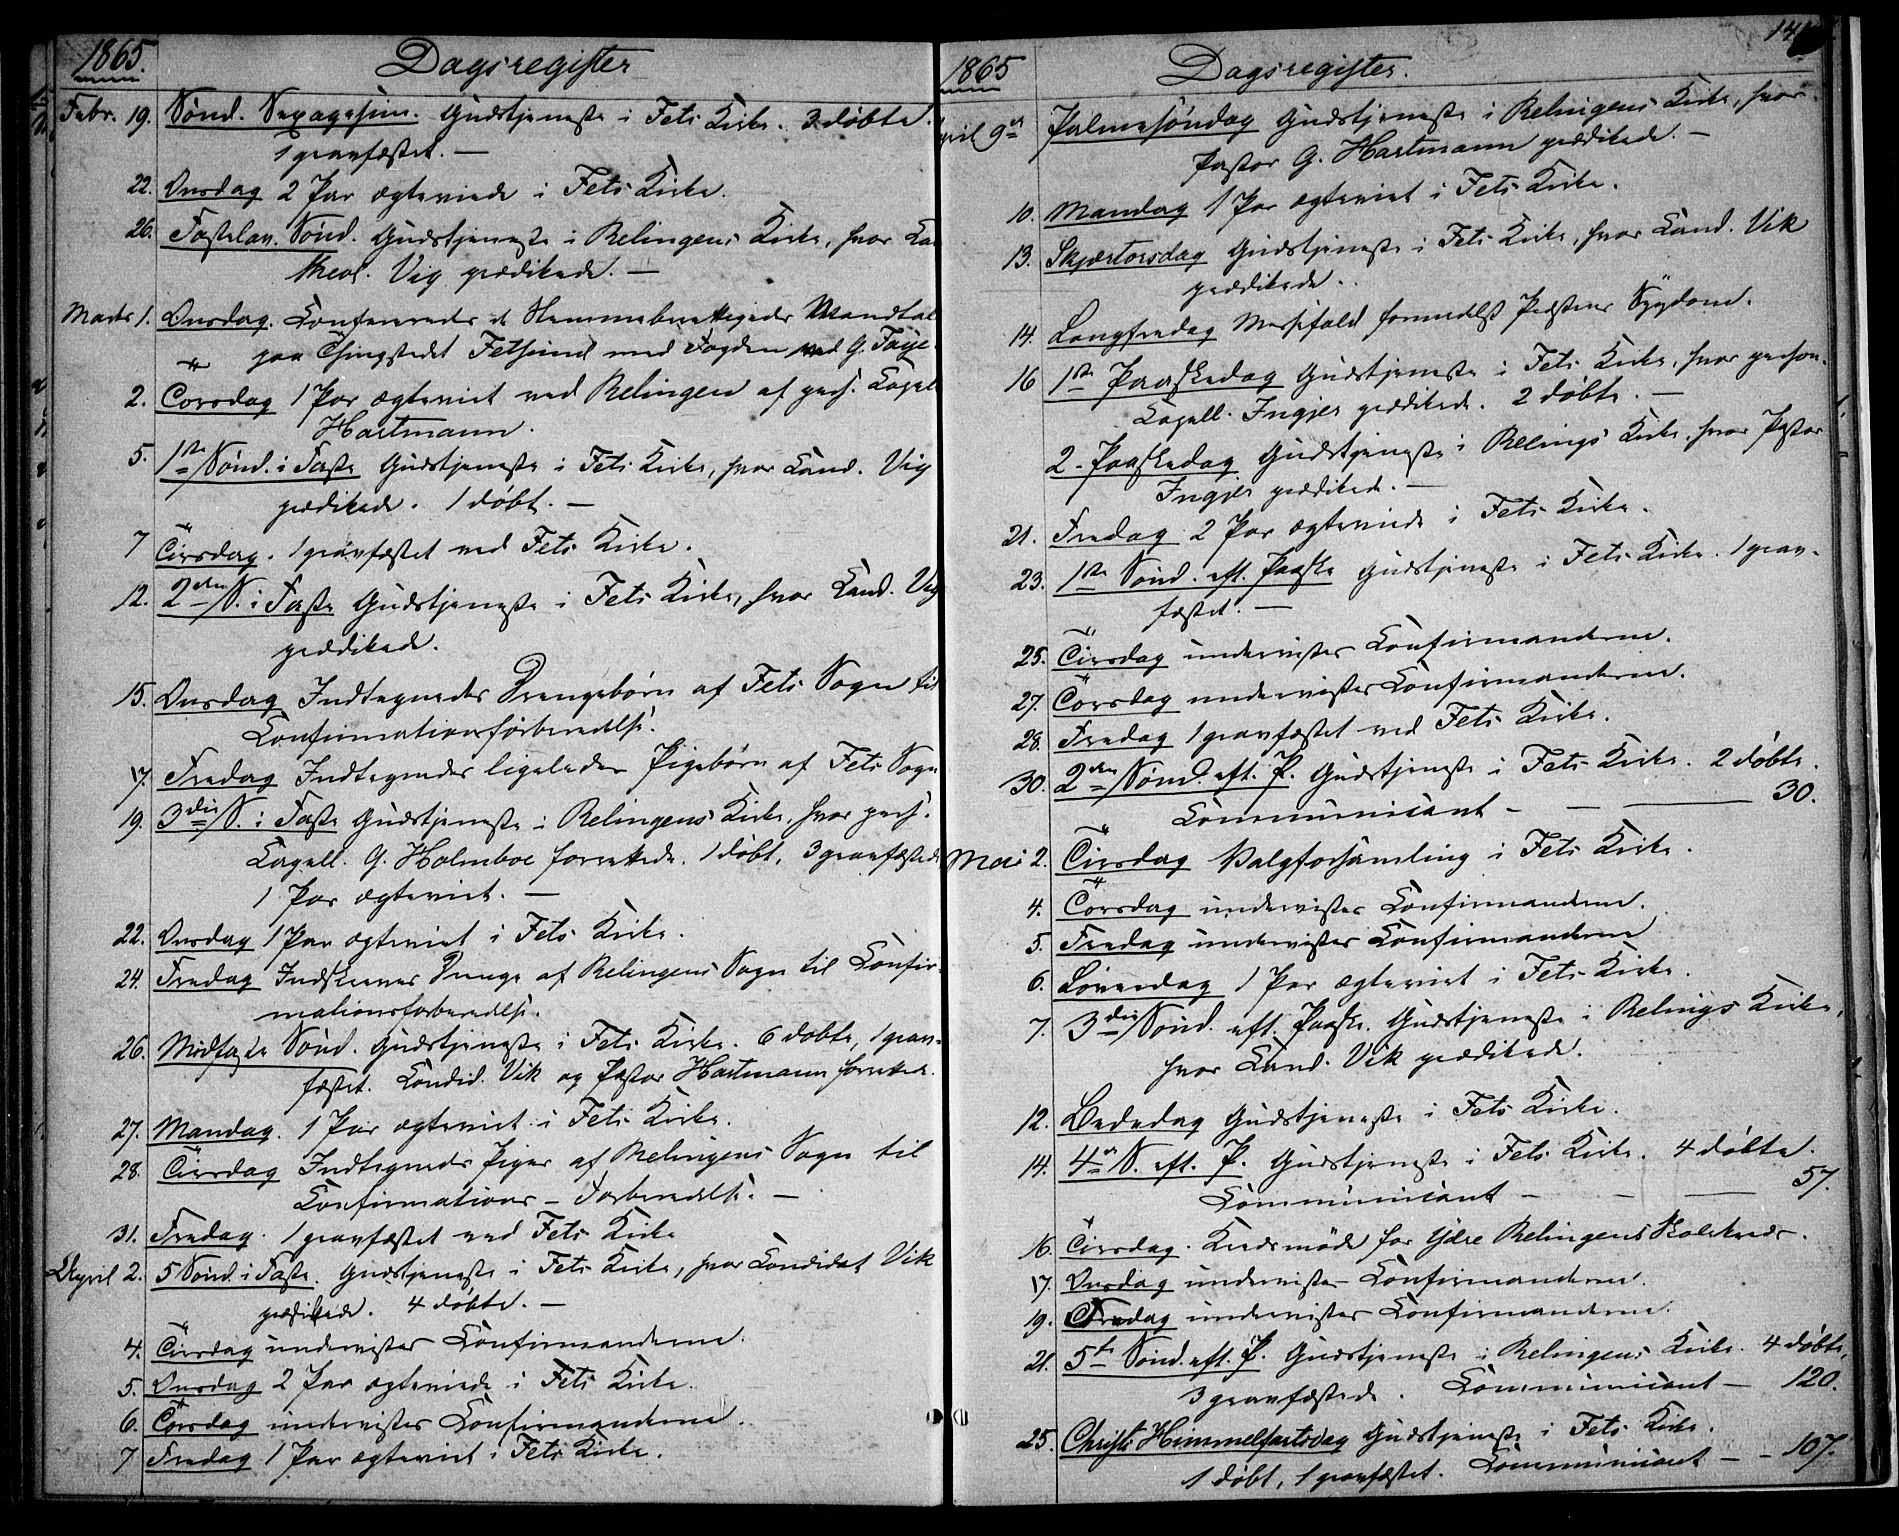 1865.
Dagsregister
Febr. 19. Sönd. Sexagesim. Gudstjeneste i Fets Kirke. 3 döbte.
1 gravfæstet. —
22. Onsdag 2 Par ægteviede i Fets Kirke.
26. Fastelav. Sönd. Gudstjeneste i Relingens Kirke, hvor
theol. Vig prædikede. —
Marts 1. Onsdag. Confereredes et Stemmeberettigedes Mandtal
paa Thingstedet Fetsund med Fogden G. Faye.
2. Torsdag 1 Par ægteviet ved Relingen af pers. Capell
Hartmann.
5. 1ste Sönd. i Faste Gudstjeneste i Fets Kirke, hvor Cand. Vig
prædikede. 1 döbt. —
7 Tirsdag. 1 gravfæstet ved Fets Kirke.
12. 2den S. i Faste Gudstjeneste i Fets Kirke, hvor Cand. Vig
prædikede.
15. Onsdag Indtegnedes Drengebörn af Fets Sogn til
Confirmationsforberedelse.
17. Fredag Indtegnedes ligeledes Pigebörn af Fets Sogn
19. 3die S. i Faste Gudstjeneste i Relingens Kirke, hvor pers.
Capell. G. Holmboe forrettede. 1 döbt, 3 gravfæstede
1 Par ægteviet. —
22. Onsdag 1 Par ægteviet i Fets Kirke.
24. Fredag Indskreves Drenge af Relingens Sogn til Confir-
mationsforberedelse.
26. Midfaste Sönd. Gudstjeneste i Fets Kirke. 6 döbte, 1 grav-
fæstet. Candid. Vik og Pastor Hartmann forrettede.
27. Mandag. 1 Par ægteviet i Fets Kirke.
28. Tirsdag Indtegnedes Piger af Relingens Sogn til
Confirmations-Forberedelse. —
31. Fredag. 1 gravfæstet ved Fets Kirke
April 2. 5 Sönd. i Faste. Gudstjeneste i Fets Kirke, hvor Candidat Vik
prædikede. 4 döbte. —
4. Tirsdag undervistes Confirmanderne.
5. Onsdag 2 Par ægteviede i Fets Kirke.
6. Torsdag undervistes Confirmanderne.
7 Fredag 1 Par ægteviet i Fets Kirke.
1865
Dagsregister.
April 9de Palmesöndag Gudstjeneste i Relingens Kirke, hvor
Pastor G. Hartmann prædikede. —
10. Mandag 1 Par ægteviet i Fets Kirke.
13. Skjærtorsdag Gudstjeneste i Fets Kirke, hvor Cand. Vik
prædikede.
14. Langfredag Messefald formedelst Præstens Sygdom.
16 1ste Paaskedag Gudstjeneste i Fets Kirke, hvor person.
Capell. Ingjer prædikede. 2 döbte. —
2. Paaskedag Gudstjeneste i Relings Kirke, hvor Pastor
Ingjer prædikede. —
21. Fredag 2 Par ægteviede i Fets Kirke.
23. 1ste Sönd. eft. Paaske Gudstjeneste i Fets Kirke. 1 grav-
fæstet. —
25. Tirsdag undervistes Confirmanderne.
27. Torsdag undervistes Confirmanderne.
28. Fredag 1 gravfæstet ved Fets Kirke.
30. 2den Sönd. eft. P. Gudstjeneste i Fets Kirke. 2 döbte.
Communicant — — — 30.
Mai 2. Tirsdag Valgforsamling i Fets Kirke.
4. Torsdag undervistes Confirmanderne.
5. Fredag undervistes Confirmanderne
6. Löverdag 1 Par ægteviet i Fets Kirke.
7. 3die Sönd. eft. Paaske. Gudstjeneste i Relings Kirke,
hvor Cand. Vik prædikede.
12. Bededag Gudstjeneste i Fets Kirke.
14. 4de S. eft. P. Gudstjeneste i Fets Kirke. 4 döbte.
Communicant — — — 57.
16. Tirsdag. Kredsmöde for Ydre Relingens Skolekreds.
17. Onsdag undervistes Confirmanderne.
19. Fredag undervistes Confirmanderne.
21. 5te Sönd. eft. P. Gudstjeneste i Relingens Kirke. 4 döbte,
3 gravfæstede. Communicant — 120.
25. Christi Himmelfartsdag Gudstjeneste i Fets Kirke.
1 döbt, 1 gravfæstet. Communicant — - 107.